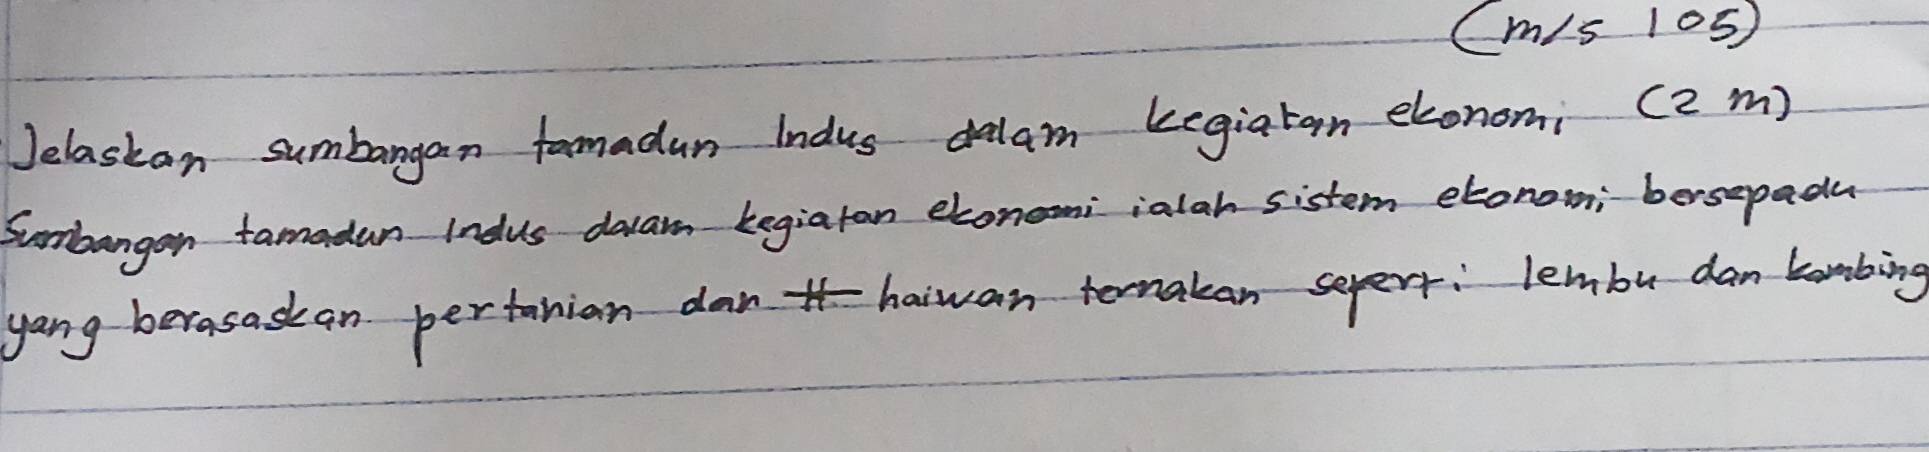 (m/s 105)
Jelaskan sumbangan tamadun Indus dalam kegiatan ekonomi (2 m)
Sumbangan tamadun Indus dalam kegiatan ekonomi ialah sistem ekonomi bersepadu
yang berasaskan pertanian dan haiwan ternakan seperti lembu dan kambing